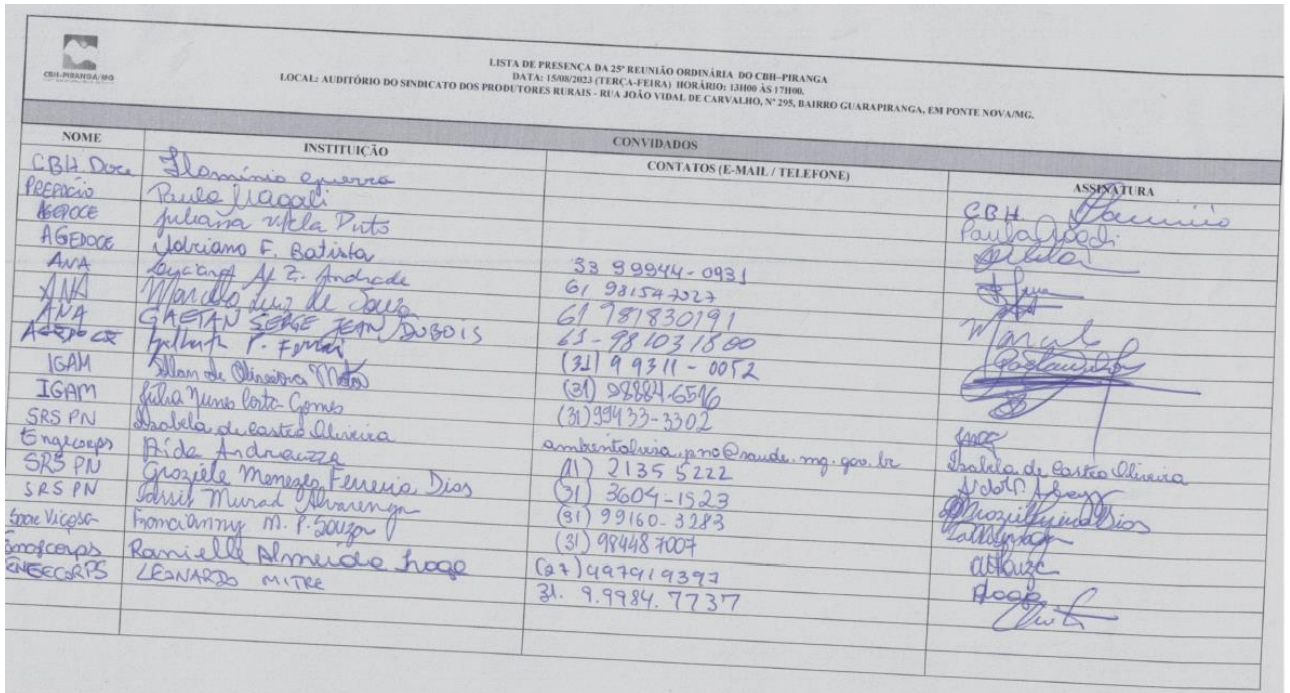 CBH-PIRANGA/MG
LISTA DE PRESENÇA DA 25ª REUNIÃO ORDINÁRIA DO CBH–PIRANGA
DATA: 15/08/2023 (TERÇA-FEIRA) HORÁRIO: 13H00 ÀS 17H00.
LOCAL: AUDITÓRIO DO SINDICATO DOS PRODUTORES RURAIS - RUA JOÃO VIDAL DE CARVALHO, Nº 295, BAIRRO GUARAPIRANGA, EM PONTE NOVA/MG.
CONVIDADOS
NOME INSTITUIÇÃO CONTATOS (E-MAIL / TELEFONE) ASSINATURA
CBH Doce Flamínio Guerra CBH Flaminio
Paula Magali Paula
AGEDOCE Juliana Vilela Pinto
AGEDOCE Adriano F. Batista 33 99944-0931
ANA Andrade 61 981547027
ANA Marcelo Luiz de Souza 61 981830191 Marcelo
ANA GAETAN SERGE JEAN DUBOIS 61-981031800
AGEDOCE P. (31) 9 9311-0052
IGAM Allan de Oliveira Mota (31) 98884-6516
IGAM Júlia Nunes Costa Gomes (31)99433-3302
SRS PN Isabela de Castro Oliveira ambientalvisa.pno@saude.mg.gov.br Isabela de Castro Oliveira
Engecorps Aída Andreazza (11) 2135 5222
SRS PN Graziele Menezes Ferreira Dias (31) 3604-1523
SRS PN Murad Alvarenga (31) 99160-3283
Viçosa M. P. Souza (31) 984487007
Engecorps Ranielle Almeida (27)997919397
ENGECORPS LEONARDO MITRE 31. 9.9984.7737